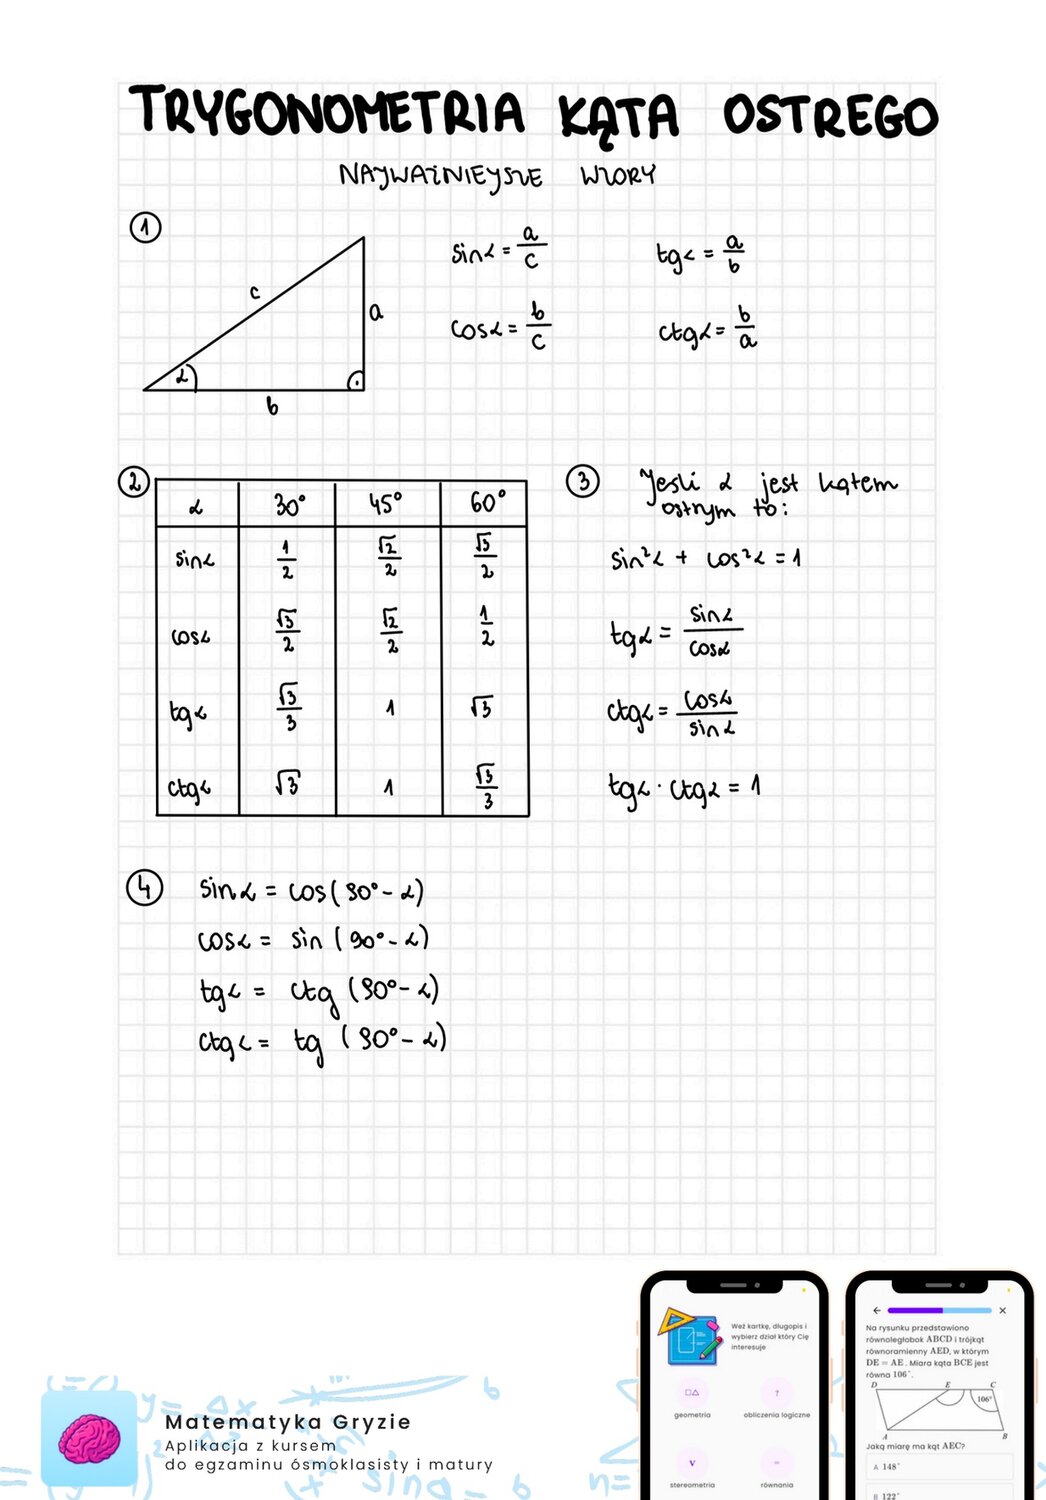 TRYGONOMETRIA KĄTA OSTREGO
NAJWAŻNIEJSZE WZORY
1
c
a
α
b
sinα = a/c
tgα = a/b
cosα = b/c
ctgα = b/a
2
α 30° 45° 60°
sinα 1/2 √2/2 √3/2
cosα √3/2 √2/2 1/2
tgα √3/3 1 √3
ctgα √3 1 √3/3
3 Jeśli α jest kątem
ostrym to:
sin²α + cos²α = 1
tgα = sinα/cosα
ctgα = cosα/sinα
tgα · ctgα = 1
4 sinα = cos(90° - α)
cosα = sin (90° - α)
tgα = ctg (90° - α)
ctgα = tg (90° - α)
Matematyka Gryzie
Aplikacja z kursem
do egzaminu ósmoklasisty i matury
Weź kartkę, długopis i
wybierz dział który Cię
interesuje
geometria
?
obliczenia logiczne
V
stereometria
=
równania
Na rysunku przedstawiono
równoległobok ABCD i trójkąt
równoramienny AED, w którym
DE = AE. Miara kąta BCE jest
równa 106°.
D E C
106°
A B
Jaką miarę ma kąt AEC?
A 148°
B 122°